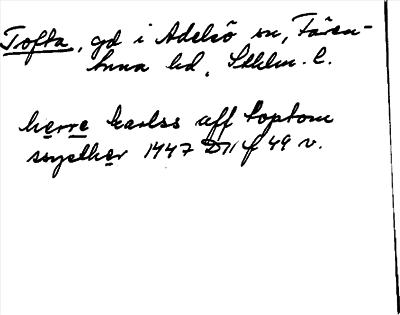 Tofta, gd i Adelsö sn, Fären-
tuna hd, Sthlm. l.
herre karlss aff toptom
ssyelher 1447 D11 f 49 v.